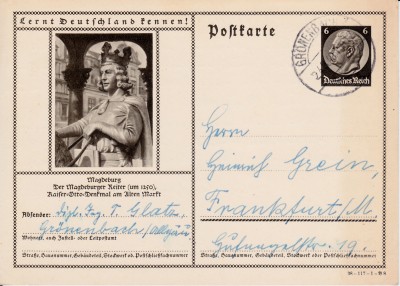 Lernt Deutschland kennen!
Postkarte
GRÖNENB
6 6
Deutsches Reich
Magdeburg
Der Magdeburger Reiter (um 1250),
Kaiser-Otto-Denkmal am Alten Markt
Absender: Dipl. Ing. T. Glatz,
Grönenbach/Allgäu
Wohnort, auch Zustell- oder Leitpostamt
Straße, Hausnummer, Gebäudeteil, Stockwerk od. Postschließfachnummer
Herrn
Heinrich Grein,
Frankfurt/M.
19.
Straße, Hausnummer, Gebäudeteil, Stockwerk oder Postschließfachnummer